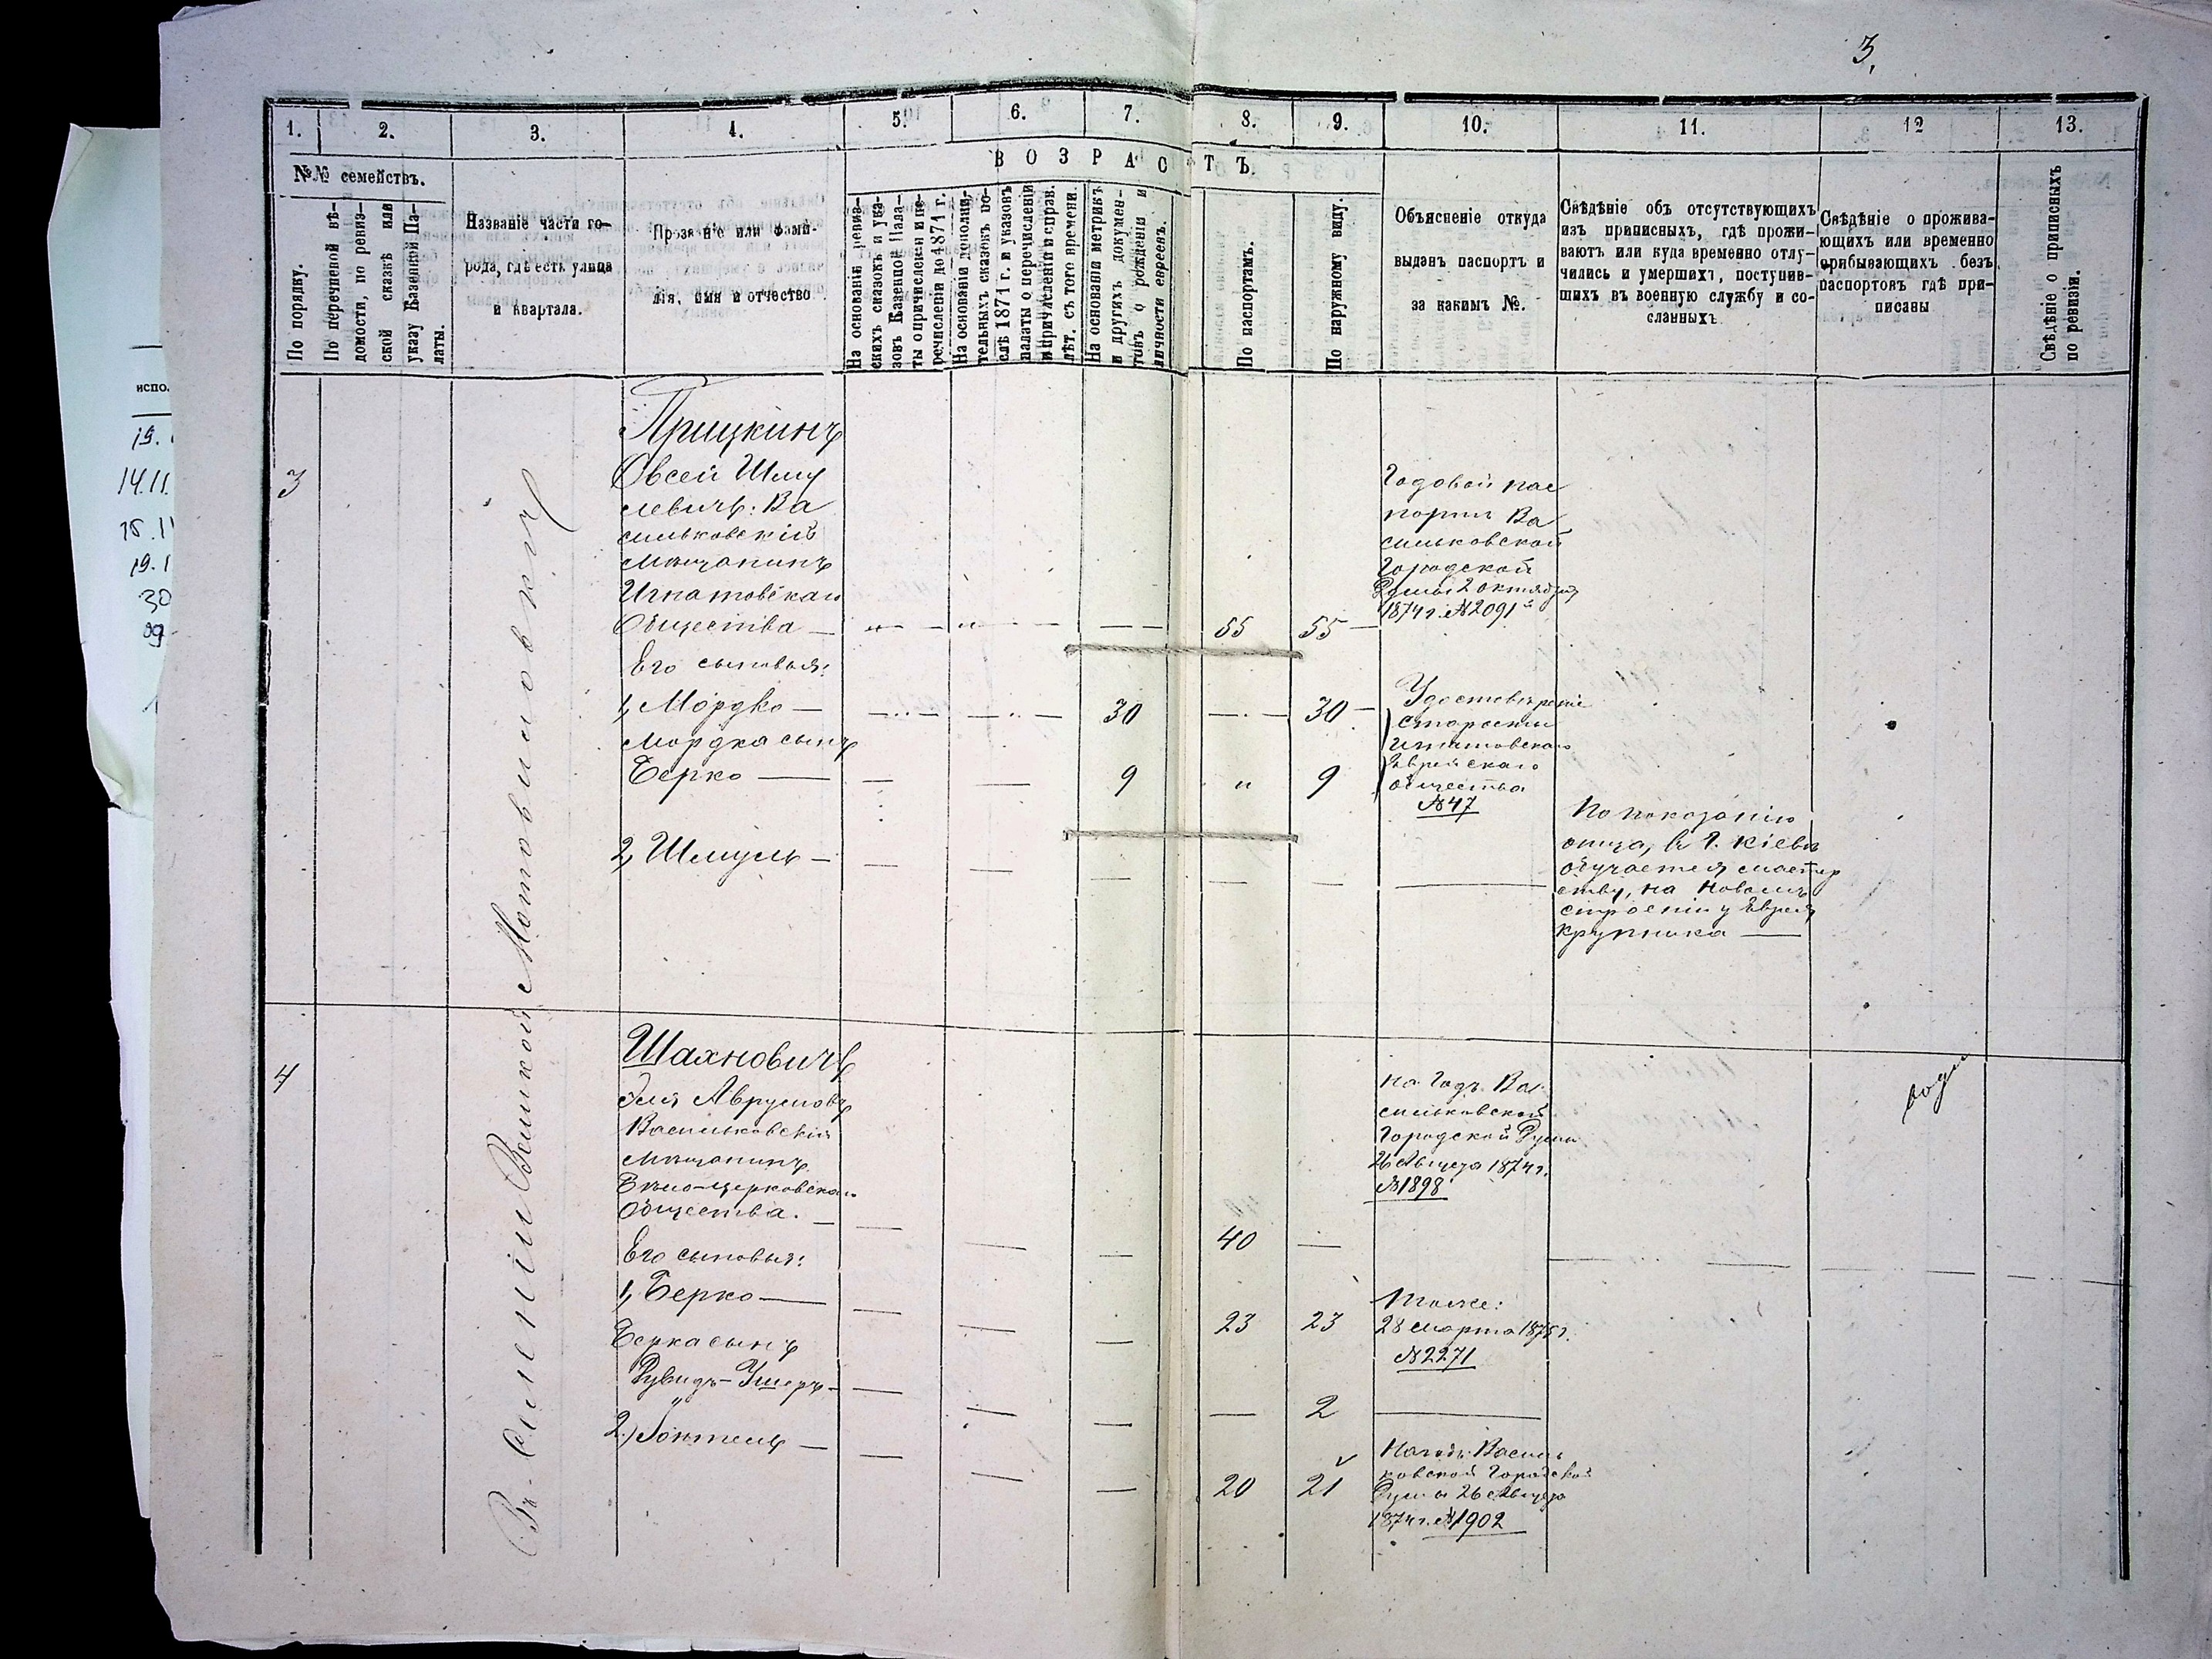 3,
1. 2. 3. 4. 5. 6. 7. 8. 9. 10. 11. 12 13.
№№ семействъ.
По порядку.
По перечневой вѣ-
домости, по ревиз-
ской сказкѣ или
указу Казенной Па-
латы.
Названіе части го-
рода, гдѣ есть улица
и квартала.
Прозваніе или фами-
лія, имя и отчество
ВОЗРАСТЪ.
На основаніи ревиз-
скихъ сказокъ и ука-
зовъ Казенной Пала-
ты о причисленіи и пе-
речисленіи до 1871 г.
На основаніи дополни-
тельныхъ сказокъ по-
слѣ 1871 г. и указовъ
палаты о перечисленіи
и причисленіи и справ.
лѣт. съ того времени.
На основаніи метрикъ
и другихъ докумен-
товъ о рожденіи и
личности евреевъ.
По паспортамъ.
По наружному виду.
Объясненіе откуда
выданъ паспортъ и
за какимъ №.
Свѣдѣніе объ отсутствующихъ
изъ приписныхъ, гдѣ прожи-
ваютъ или куда временно отлу-
чились и умершихъ, поступив-
шихъ въ военную службу и со-
сланныхъ
Свѣдѣніе о прожива-
ющихъ или временно
прибывающихъ безъ
паспортовъ гдѣ при-
писаны
Свѣдѣніе о приписныхъ
по ревизіи.
испо.
19.
14.11.
19.1
30
09
Въ селеніи Великой Мотовиловкѣ
3
Прицкинъ
Овсей Шму
левичъ: Ва
сильковскій
мѣщанинъ
Игнатовскаго
Общества —
55 55 —
Годовой пас
портъ Ва
сильковской
Городской
Думы 2 октября
1874 г. № 2091й
Его сыновья:
1, Мордко —
30 30 —
Мордка сынъ
Берко —
9 „ 9
Удостовѣреніе
старосты
Игнатовскаго
Еврейскаго
общества
№ 47
2, Шмуль —
По показанію
отца, въ г. Кіевѣ
обучается мастер
ству, на Новомъ
строеніи у Еврея
Крупника —
4
Шахновичъ
Эля Аврумовъ
Васильковскій
мѣщанинъ
Бѣло-церковскаго
Общества. —
40 —
на годъ Ва
сильковской
Городской Думы
26 Августа 1874 г.
№ 1898
Его сыновья:
1, Берко —
23 23
Тоже:
28 марта 1875 г.
№ 2271
Берка сынъ
Дувидъ-Ушеръ —
— 2
2,) Іонтель —
20 21
На годъ Василь
ковской Городской
Думы 26 Августа
1874 г. № 1902